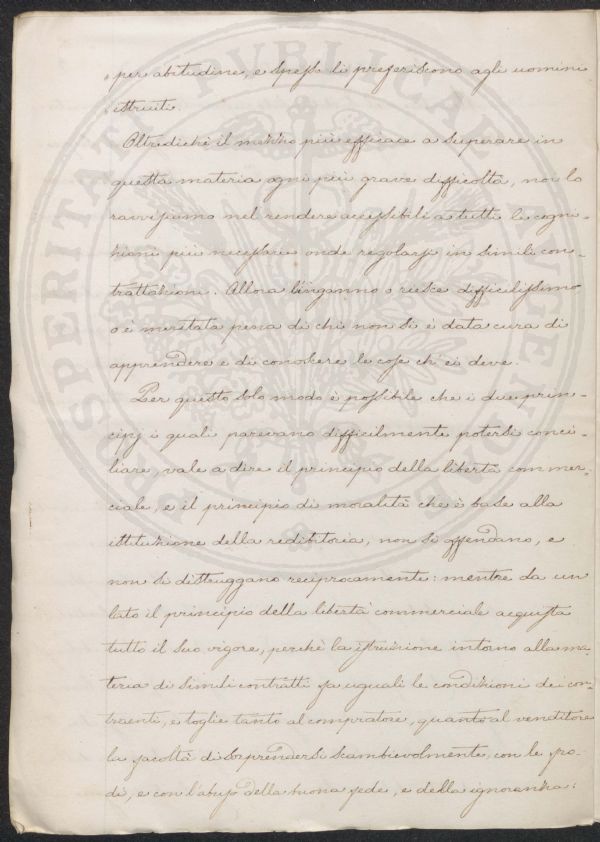 per abitudine, e spesso li preferiscono agli uomini
istruiti.
Oltredichè il mezzo più efficace a superare in
questa materia ogni più grave difficoltà, noi lo
ravvisiamo nel rendere accessibili a tutti le cogni-
zioni più necessarie onde regolarsi in simili con-
trattazioni. Allora l'inganno o riesce difficilissimo
o è meritata pena di chi non si è data cura di
apprendere e di conoscere le cose ch'ei deve.
Per questo solo modo è possibile che i due prin-
cipj i quali parevano difficilmente potersi conci-
liare, vale a dire il principio della libertà commer-
ciale, e il principio di moralità che è base alla
istituzione della redibitoria, non si offendano, e
non si distruggano reciprocamente: mentre da un
lato il principio della libertà commerciale acquista
tutto il suo vigore, perchè la istruzione intorno alla ma-
teria di simili contratti fa uguali le condizioni dei con-
traenti, e toglie tanto al compratore, quanto al venditore
la facoltà di sorprendersi scambievolmente, con le fro-
di, e con l'abuso della buona fede, e della ignoranza:
PROSPERITATI PUBLICAE AUGENDAE